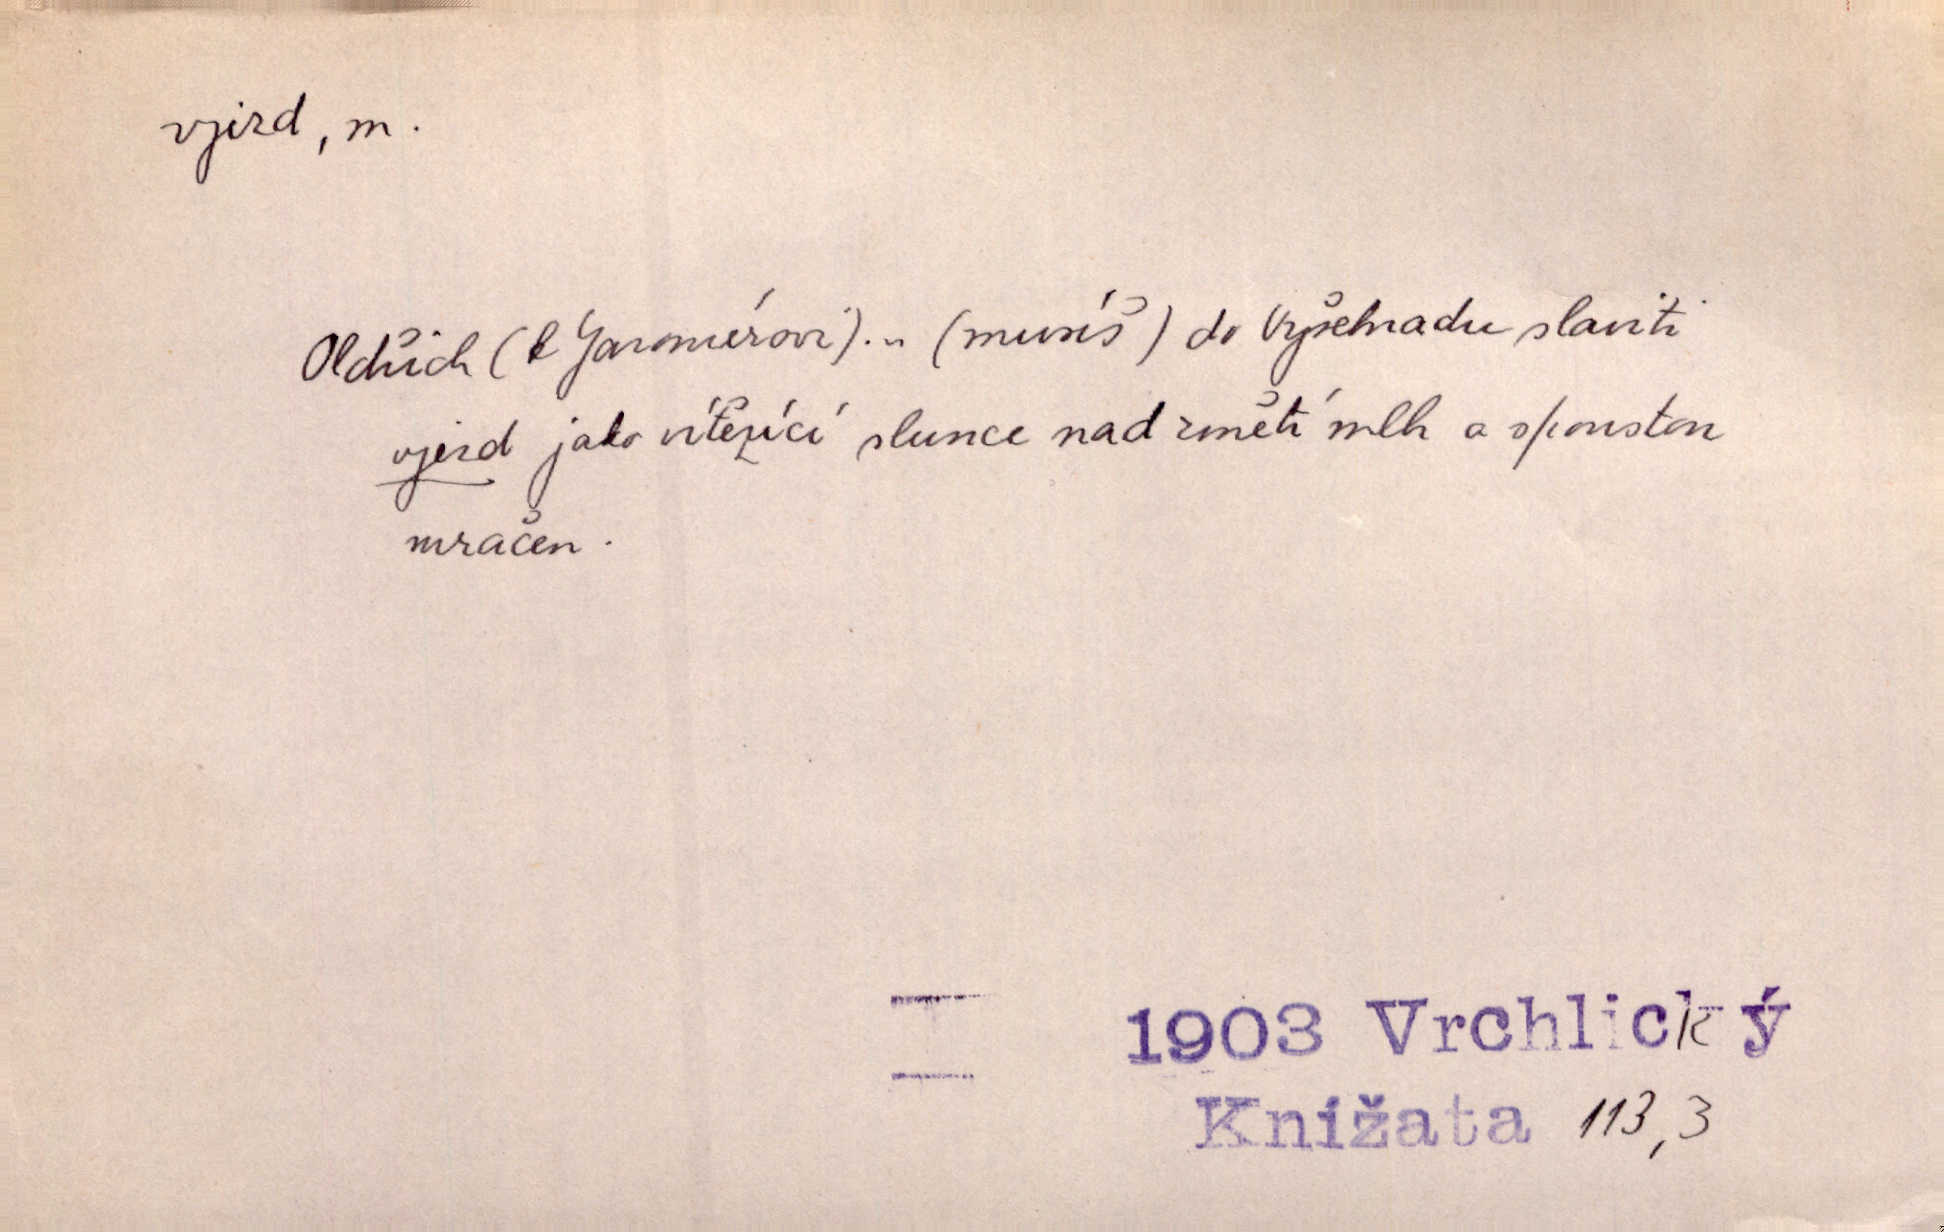 vjezd, m.
Oldřich (k Jaromírovi)... (musíš) do Vyšehradu slaviti
vjezd jako vítězící slunce nad změtí mlh a spoustou
mračen.
1903 Vrchlický
Knížata 113,3